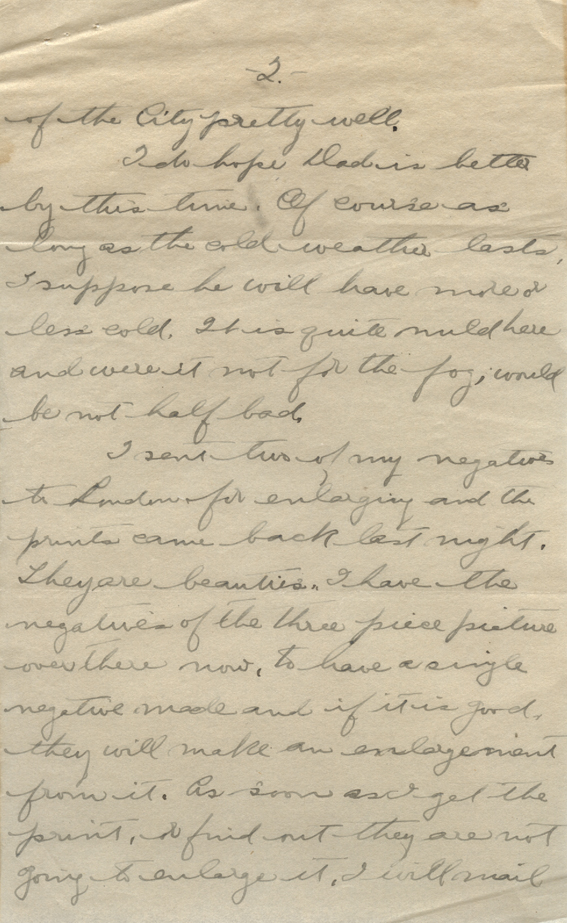 -2.-
of the City pretty well.
I do hope Dad is better
by this time. Of course as
long as the cold weather lasts,
I suppose he will have more or
less cold. It is quite mild here
and were it not for the fog, would
be not half bad.
I sent two of my negatives
to London for enlarging and the
prints came back last night.
They are beauties. I have the
negatives of the three piece picture
over there now, to have a single
negative made and if it is good,
they will make an enlargement
from it. As soon as I get the
print, or find out they are not
going to enlarge it, I will mail